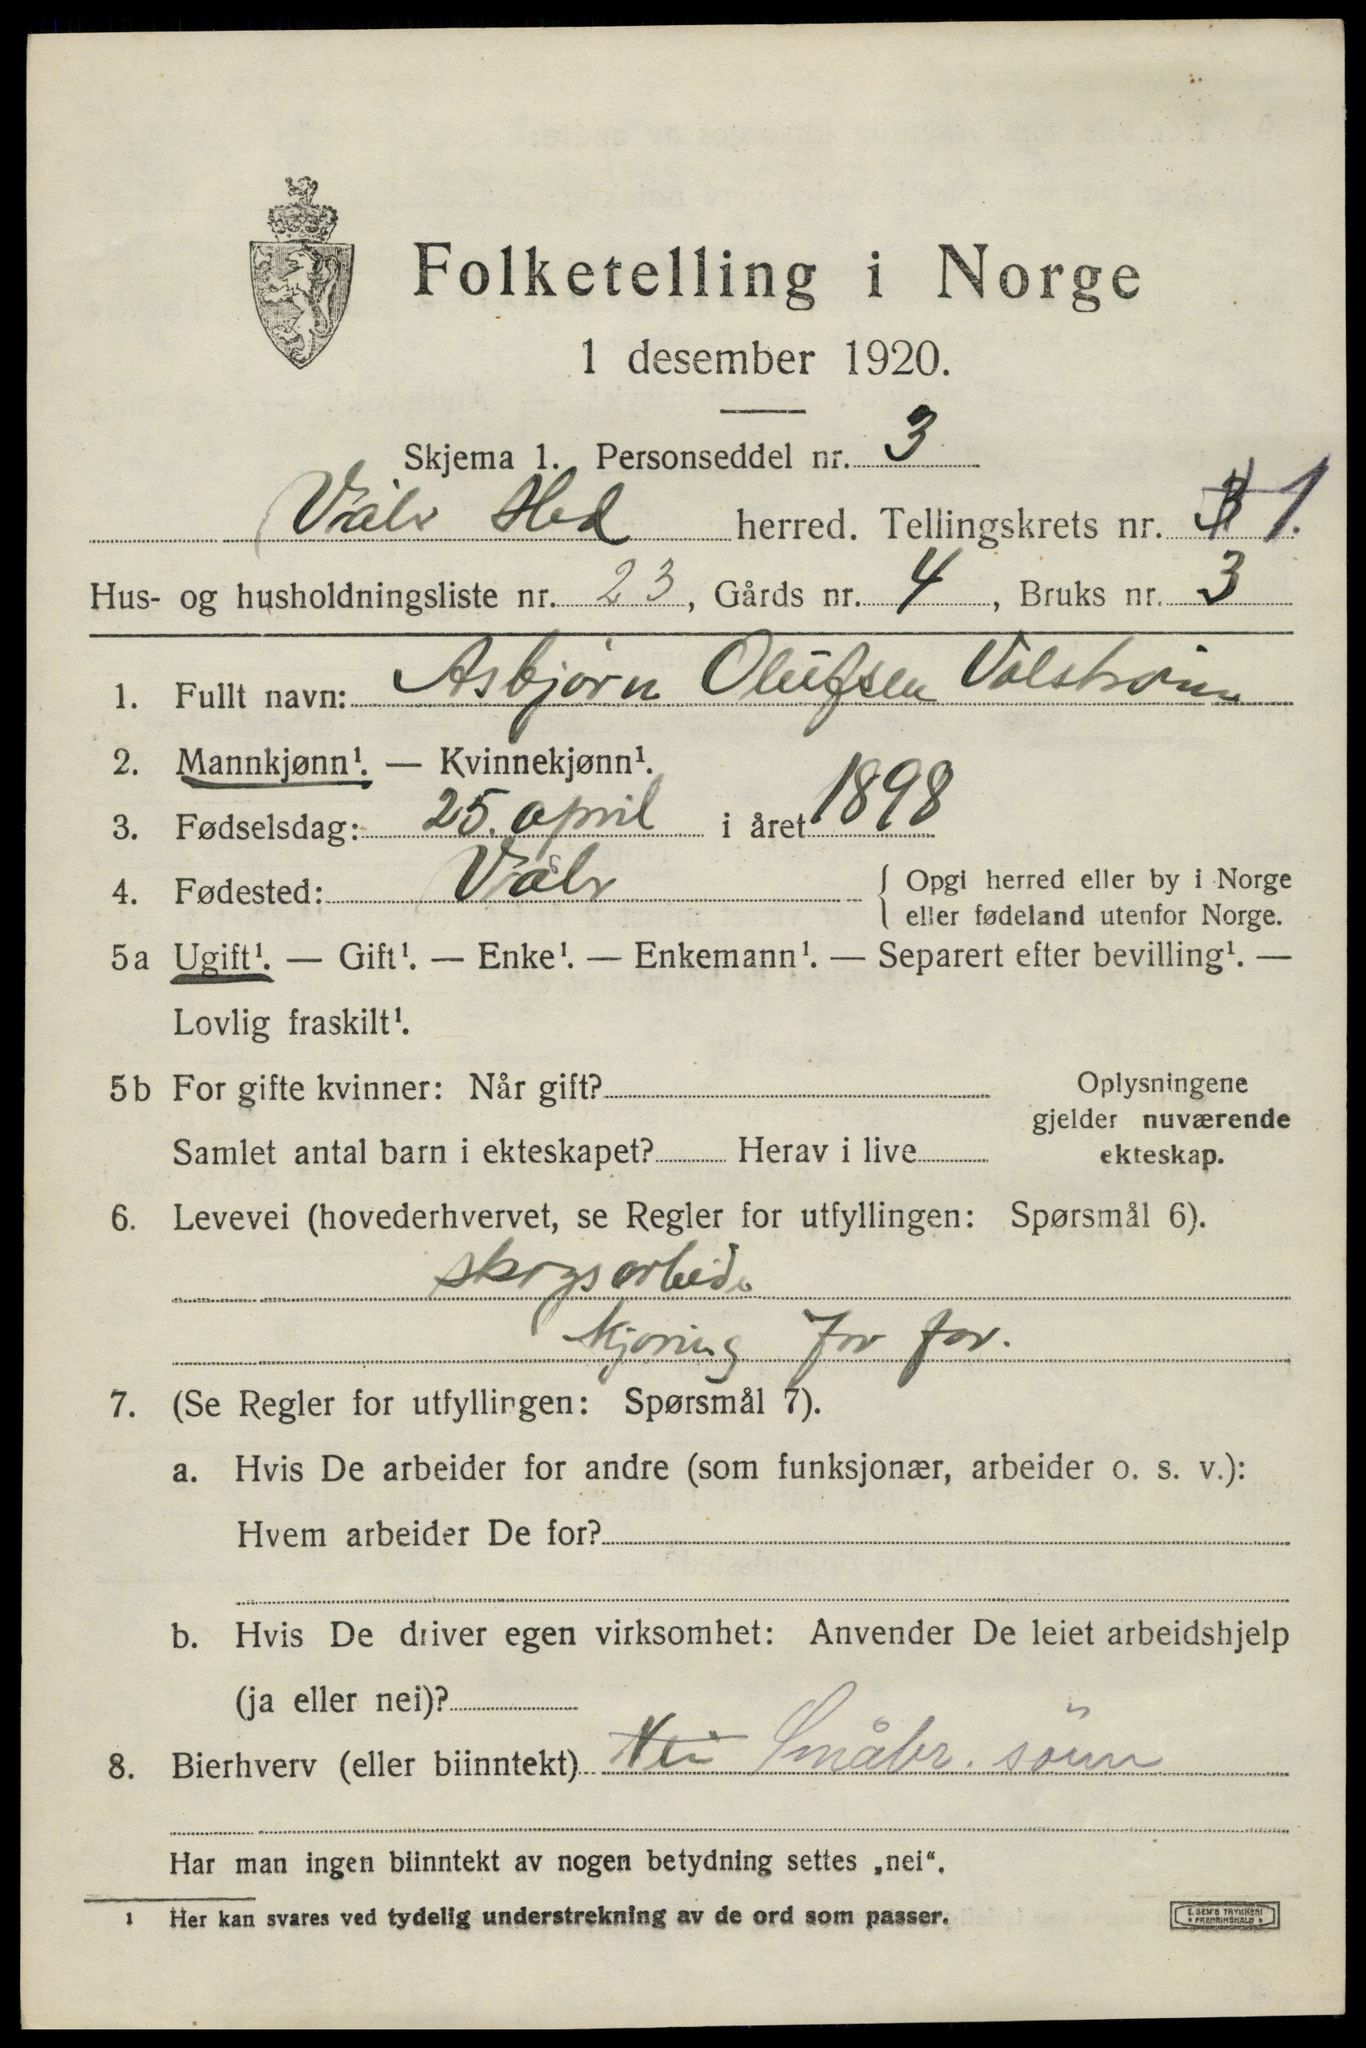 Folketelling i Norge
1 desember 1920.
Skjema 1. Personseddel nr. 3
Våler Hed herred. Tellingskrets nr. 1.
Hus- og husholdningsliste nr. 23, Gårds nr. 4, Bruks nr. 3
1. Fullt navn: Asbjørn Olufsen
2. Mannkjønn¹. — Kvinnekjønn¹.
3. Fødselsdag: 25. april i året 1898
4. Fødested: Våler { Opgi herred eller by i Norge
eller fødeland utenfor Norge.
5a Ugift¹. — Gift¹. — Enke¹. — Enkemann¹. — Separert efter bevilling¹. —
Lovlig fraskilt¹.
5b For gifte kvinner: Når gift? Oplysningene
gjelder nuværende
Samlet antal barn i ekteskapet? Herav i live ekteskap.
6. Levevei (hovederhvervet, se Regler for utfyllingen: Spørsmål 6).
skogsarbeide
kjøring for far.
7. (Se Regler for utfyllingen: Spørsmål 7).
a. Hvis De arbeider for andre (som funksjonær, arbeider o. s. v.):
Hvem arbeider De for?
b. Hvis De driver egen virksomhet: Anvender De leiet arbeidshjelp
(ja eller nei)?
8. Bierhverv (eller biinntekt) Nei Småbr. sönn
Har man ingen biinntekt av nogen betydning settes „nei“.
1 Her kan svares ved tydelig understrekning av de ord som passer.
E. SEM'S TRYKKERI
FREDRIKSHALD